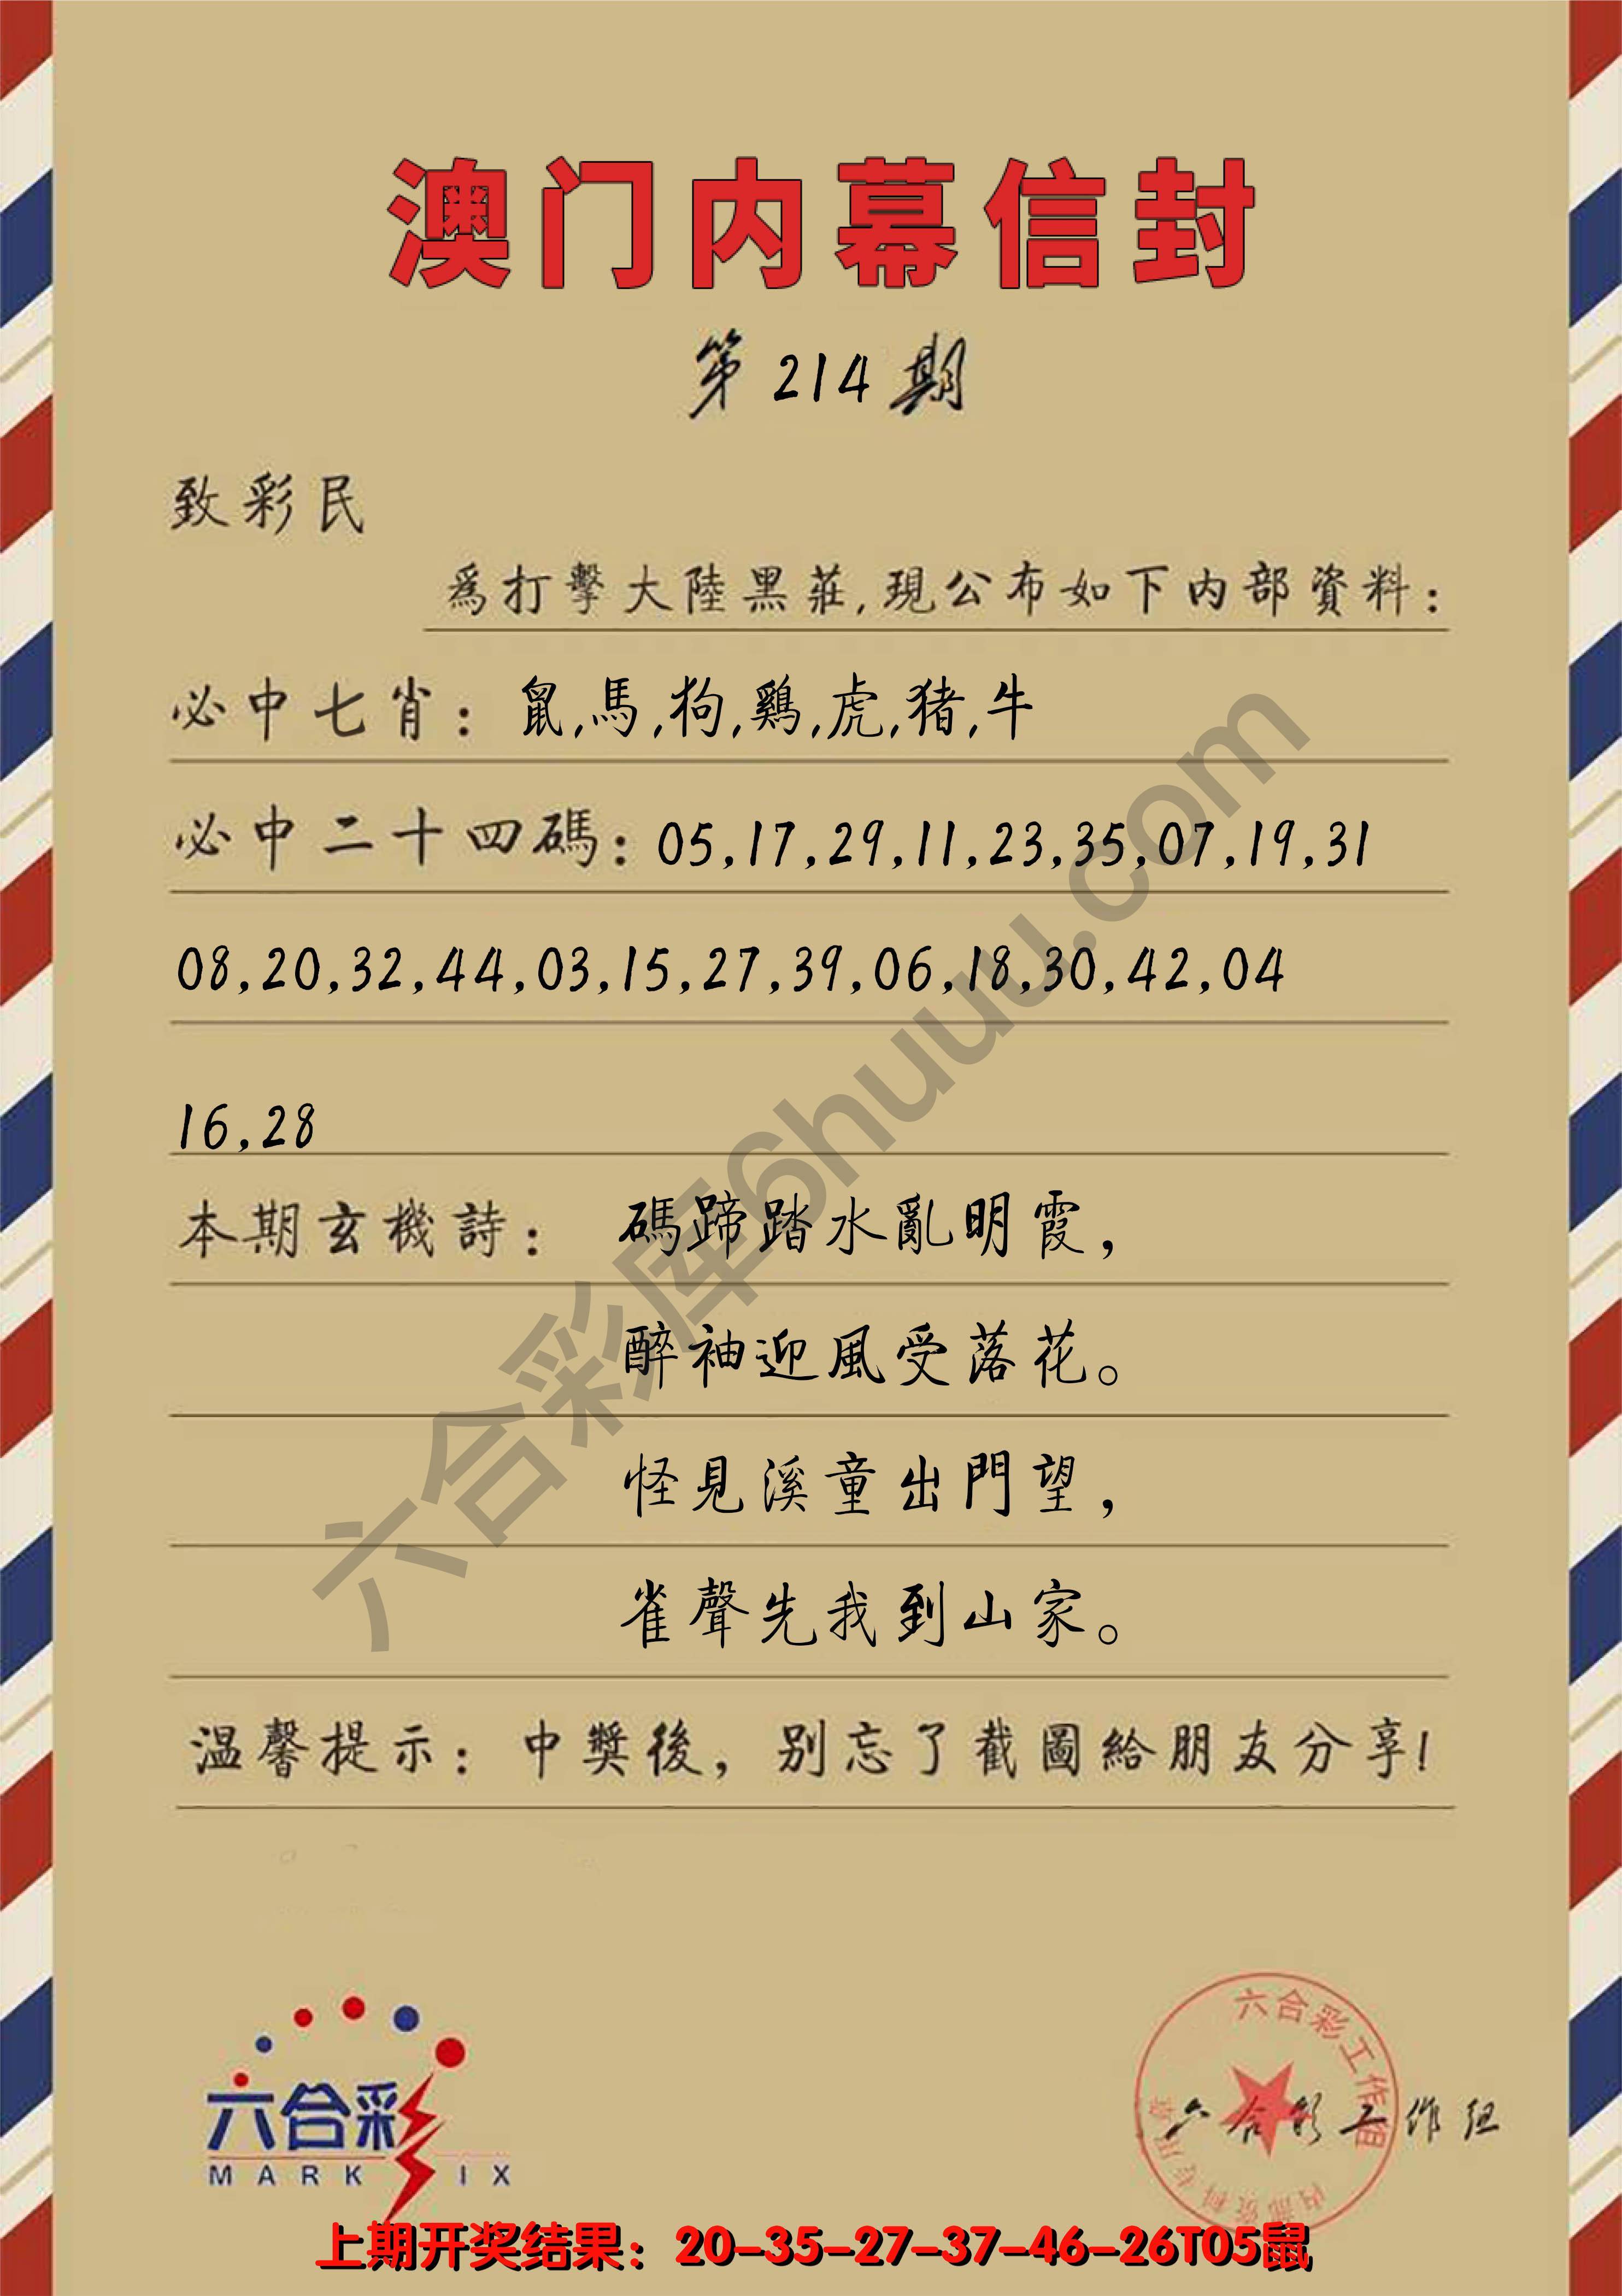 澳门内幕信封
第214期
致彩民
爲打擊大陸黑莊,現公布如下内部資料:
必中七肖: 鼠,馬,狗,鷄,虎,猪,牛
必中二十四碼: 05,17,29,11,23,35,07,19,31
08,20,32,44,03,15,27,39,06,18,30,42,04
16,28
本期玄機詩: 碼蹄踏水亂明霞,
醉袖迎風受落花。
怪見溪童出門望,
雀聲先我到山家。
温馨提示: 中獎後, 别忘了截圖給朋友分享!
六合彩库6huuu.com
六合彩
MARK IX
六合彩工作组
内部资料专用章
六合彩工作组
上期开奖结果: 20-35-27-37-46-26T05鼠